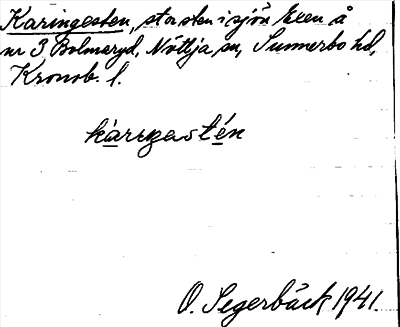 Karingesten, stor sten i sjön Exen å
nr 3 Bolmaryd, Nöttja sn, Sunnerbo hd,
Kronob. l.
kàrıŋastén
O. Segerbäck 1941.